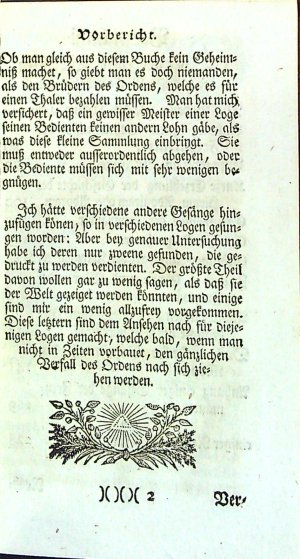 Vorbericht.
Ob man gleich aus diesem Buche kein Geheim-
niß machet, so giebt man es doch niemanden,
als den Brüdern des Ordens, welche es für
einen Thaler bezahlen müssen. Man hat mich
versichert, daß ein gewisser Meister einer Loge
seinen Bedienten keinen andern Lohn gäbe, als
was diese kleine Sammlung einbringt. Sie
muß entweder ausserordentlich abgehen, oder
die Bediente müssen sich mit sehr wenigen be-
gnügen.
Ich hätte verschiedene andere Gesänge hin-
zufügen könen, so in verschiedenen Logen gesun-
gen worden: Aber bey genauer Untersuchung
habe ich deren nur zweene gefunden, die ge-
druckt zu werden verdienten. Der größte Theil
davon wollen gar zu wenig sagen, als daß sie
der Welt gezeiget werden könnten, und einige
sind mir ein wenig allzufrey vorgekommen.
Diese letztern sind dem Ansehen nach für dieje-
nigen Logen gemacht, welche bald, wenn man
nicht in Zeiten vorbauet, den gänzlichen
Verfall des Ordens nach sich zie-
hen werden.
)( )( )( 2 Ver-